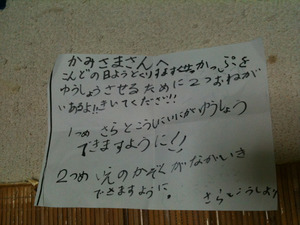 かみさまさんへ
こんどの日ようとくりすますすぺしゃるかっぷを
ゆうしょうさせるために2つおねが
いあるよ!!きいてください!!
1つめ さらとこうしにいにがゆうしょう
できますように!!
2つめ いえのかぞくがながいき
できますように。
さらとこうしより